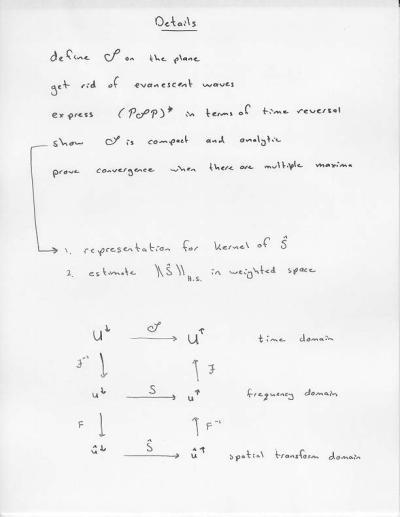 Details
define 𝒮 on the plane
get rid of evanescent waves
express (P𝒮P)* in terms of time reversal
show 𝒮 is compact and analytic
prove convergence when there are multiple maxima
1. representation for kernel of Ŝ
2. estimate ||Ŝ||H.S. in weighted space
U↓ 𝒮 → U↑ time domain
ℱ⁻¹ ↓ ↑ ℱ
u↓ S → u↑ frequency domain
F ↓ ↑ F⁻¹
û↓ Ŝ → û↑ spatial transform domain